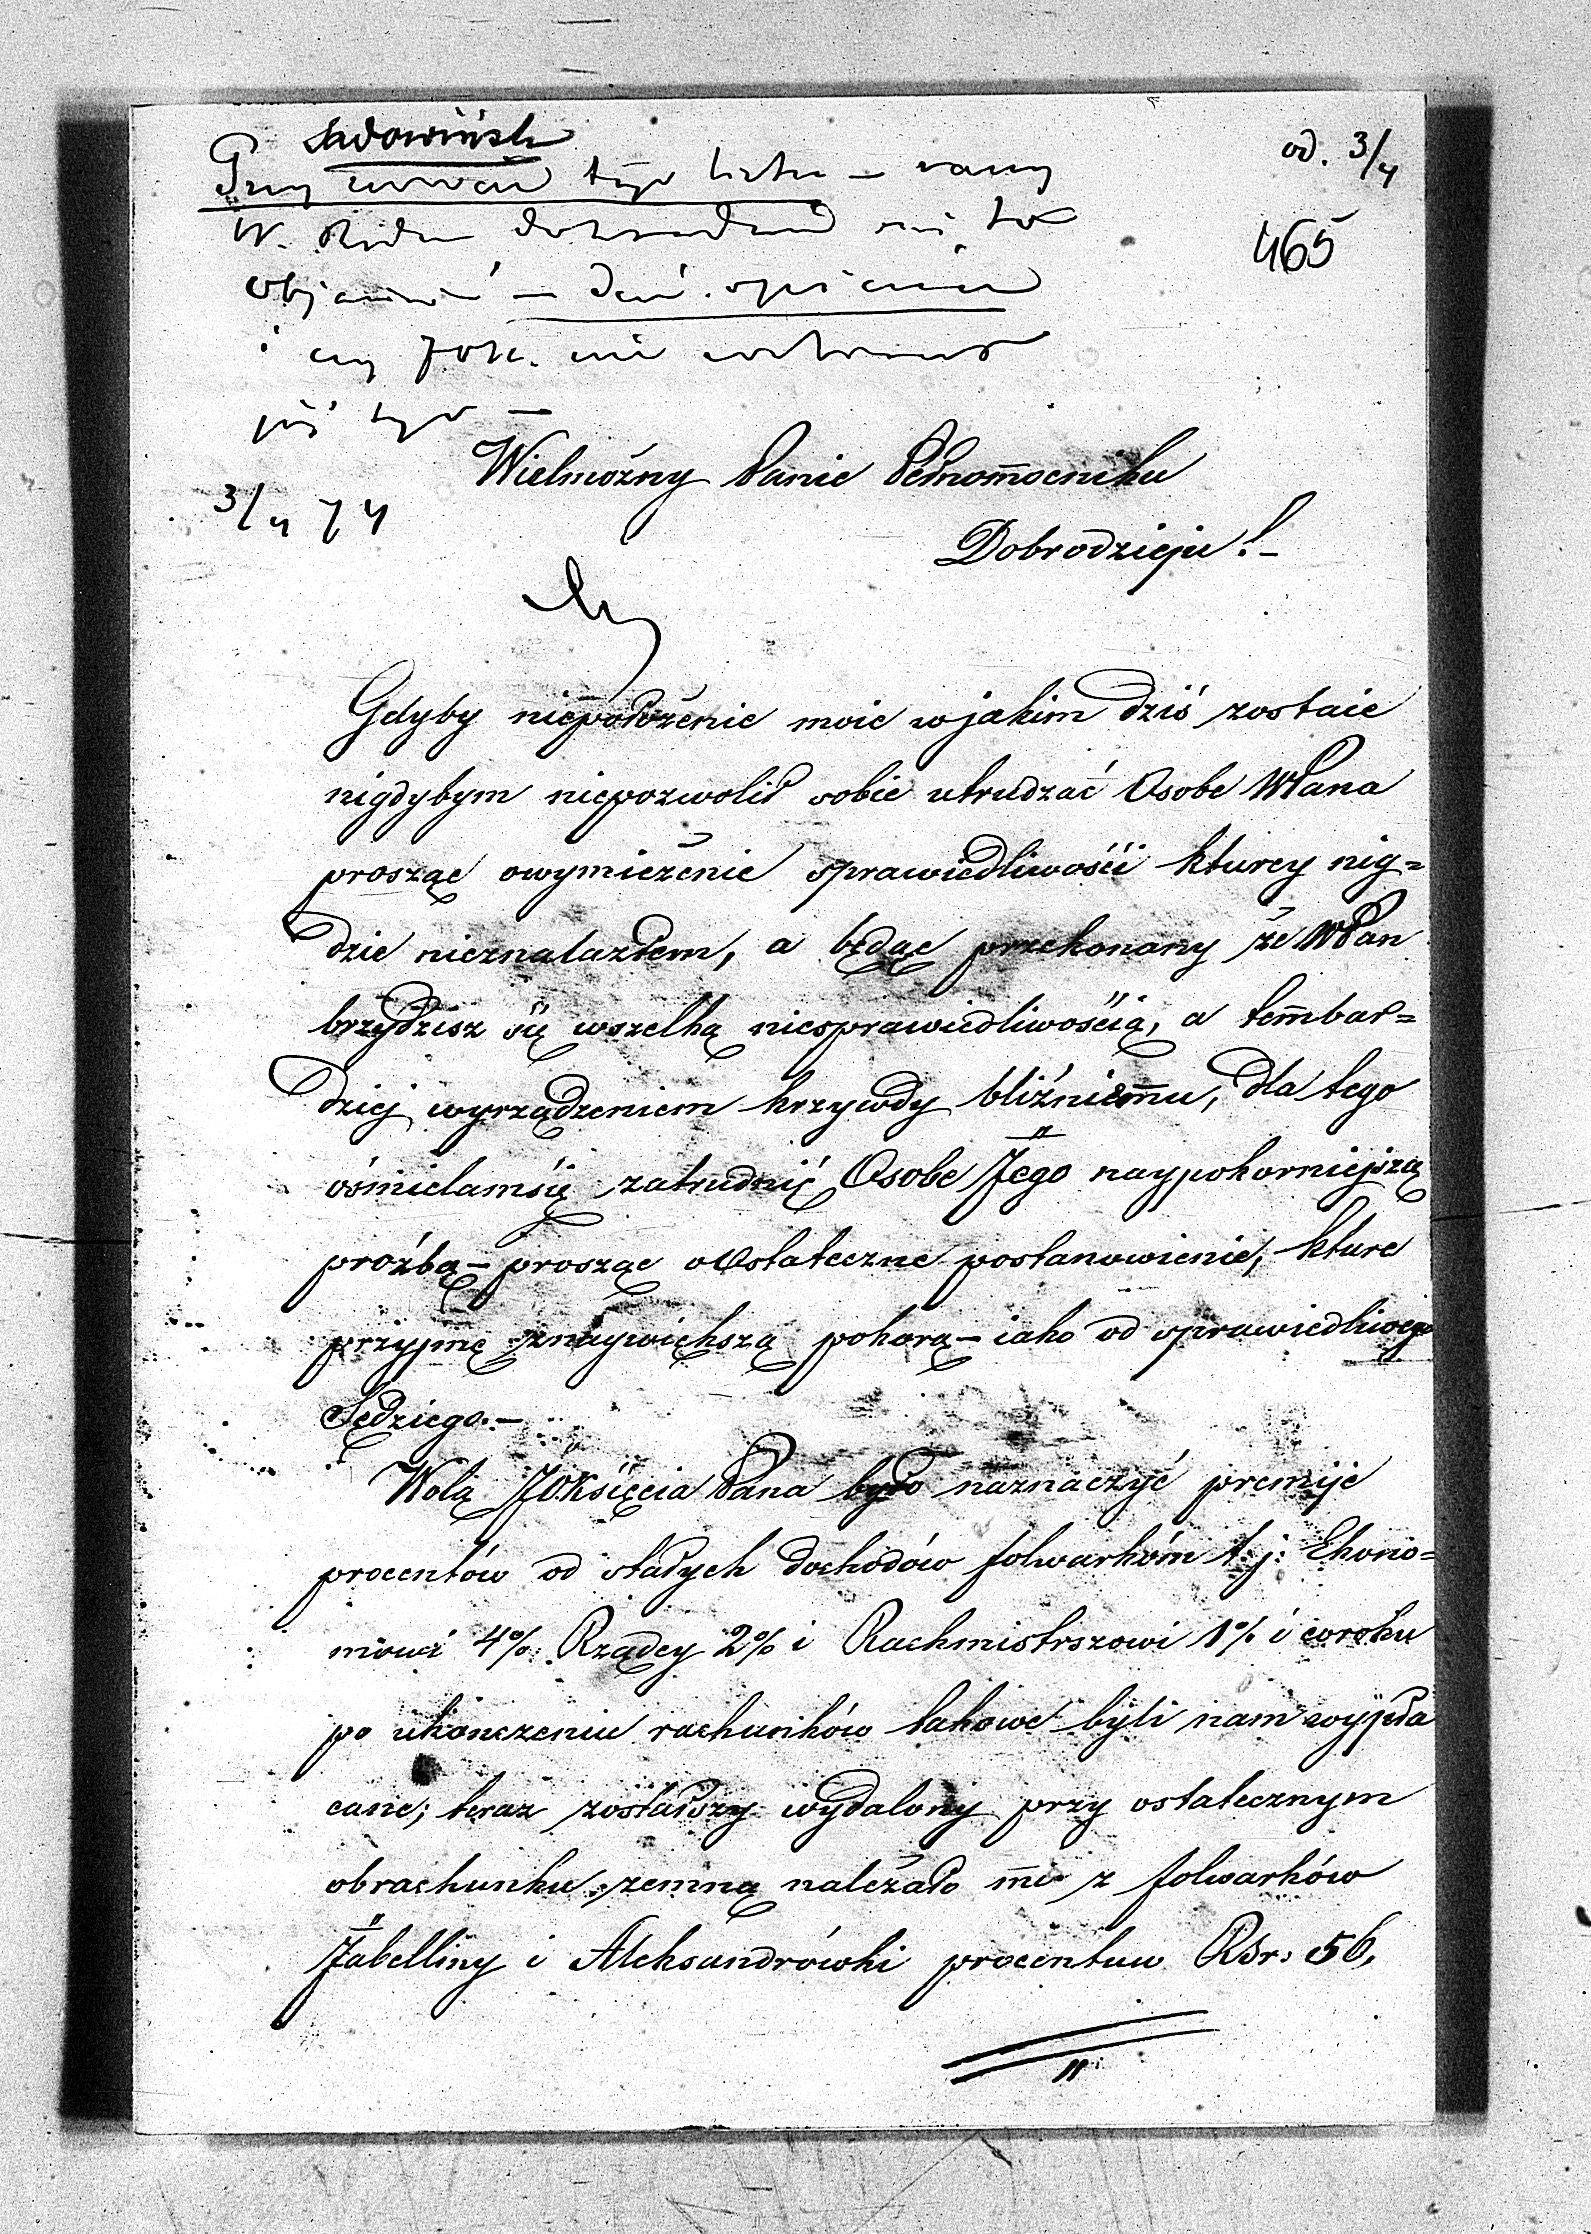 od. 3/4
465
tego listu —
W.
— dać opinie
i czy JOX. nie
już tego —
3/4 74
Wielmożny Panie Pełnomocniku
Dobrodzieju!
Gdyby niepołożenie moie w jakim dziś zostaie
nigdybym niepozwolił sobie utrudzać Osobe WPana
prosząc owymieżenie sprawiedliwośći kturey nig=
dzie nieznalazłem, a będąc przekonany że WPan
brzydzisz się wszelką niesprawiedliwośćią, a tembar=
dziej wyrządzeniem krzywdy bliźniemu, dla tego
ośmielamsię zatrudnić Osobe Jego naypokorniejszą
proźbą – prosząc oOstateczne postanowienie, kture
przyjmę znaywiększą pokorą – iako od sprawiedliwego
Sędziego. –
Wolą JOKsięcia Pana było naznaczyć premije
procentów od stałych dochodów folwarkóm t. j: Ekono=
mowi 4% Rządcy 2% i Rachmistrszowi 1% i coroku
po ukończeniu rachunków takowe byli nam wypła
cane; teraz zostałszy wydalony przy ostatecznym
obrachunku zemną należało mi z folwarków
Jabelliny i Aleksandrówki procentuw RSr. 56,